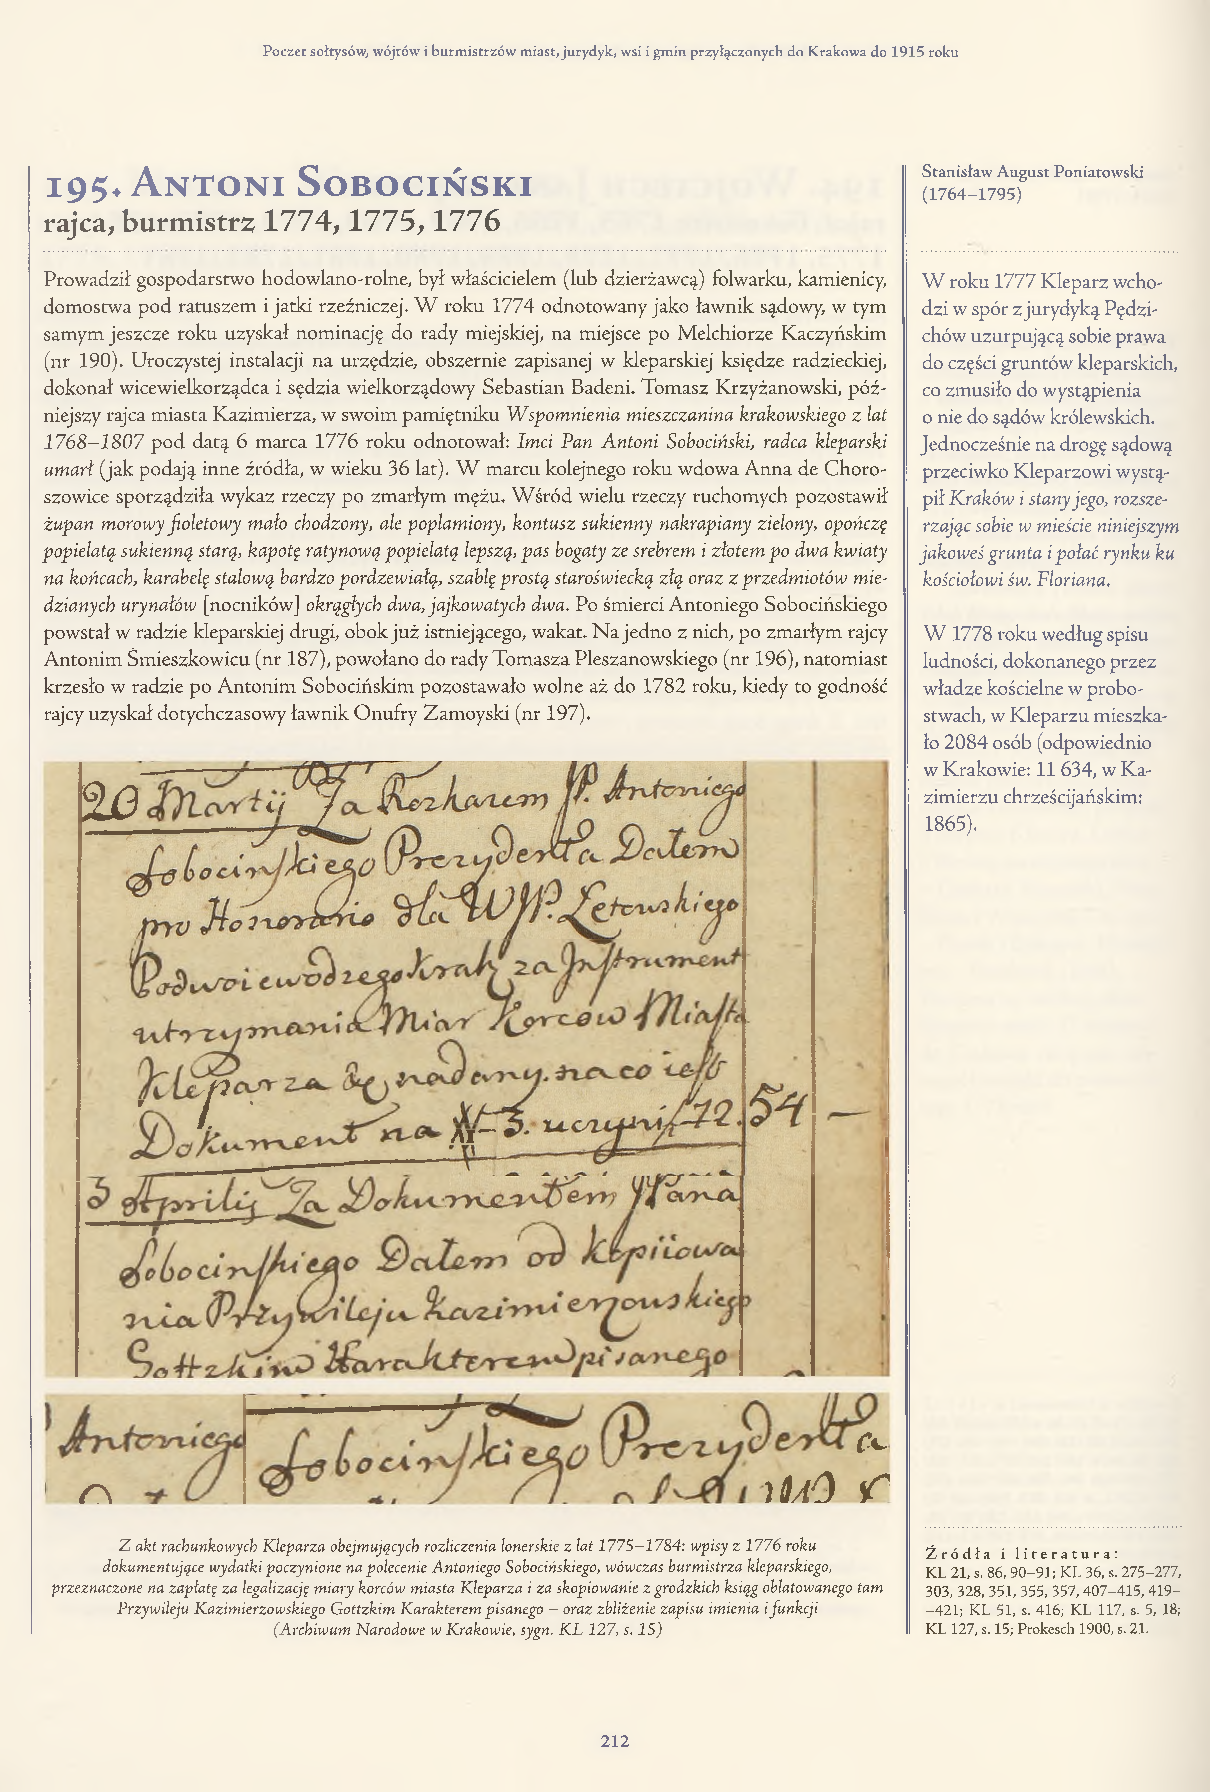 Poczet sołtysów, wójtów i burmistrzów miast, jurydyk, wsi i gmin przyłączonych do Krakowa do 1915 roku
195. Antoni Sobociński
rajca, burmistrz 1774, 1775, 1776
Prowadził gospodarstwo hodowlano-rolne, był właścicielem (lub dzierżawcą) folwarku, kamienicy,
domostwa pod ratuszem i jatki rzeźniczej. W roku 1774 odnotowany jako ławnik sądowy, w tym
samym jeszcze roku uzyskał nominację do rady miejskiej, na miejsce po Melchiorze Kaczyńskim
(nr 190). Uroczystej instalacji na urzędzie, obszernie zapisanej w kleparskiej księdze radzieckiej,
dokonał wicewielkorządca i sędzia wielkorządowy Sebastian Badeni. Tomasz Krzyżanowski, póź-
niejszy rajca miasta Kazimierza, w swoim pamiętniku Wspomnienia mieszczanina krakowskiego z lat
1768–1807 pod datą 6 marca 1776 roku odnotował: Imci Pan Antoni Sobociński, radca kleparski
umarł (jak podają inne źródła, w wieku 36 lat). W marcu kolejnego roku wdowa Anna de Choro-
szowice sporządziła wykaz rzeczy po zmarłym mężu. Wśród wielu rzeczy ruchomych pozostawił
żupan morowy fioletowy mało chodzony, ale poplamiony, kontusz sukienny nakrapiany zielony, opończę
popielatą sukienną starą, kapotę ratynową popielatą lepszą, pas bogaty ze srebrem i złotem po dwa kwiaty
na końcach, karabelę stalową bardzo pordzewiałą, szablę prostą staroświecką złą oraz z przedmiotów mie-
dzianych urynałów [nocników] okrągłych dwa, jajkowatych dwa. Po śmierci Antoniego Sobocińskiego
powstał w radzie kleparskiej drugi, obok już istniejącego, wakat. Na jedno z nich, po zmarłym rajcy
Antonim Śmieszkowicu (nr 187), powołano do rady Tomasza Pleszanowskiego (nr 196), natomiast
krzesło w radzie po Antonim Sobocińskim pozostawało wolne aż do 1782 roku, kiedy to godność
rajcy uzyskał dotychczasowy ławnik Onufry Zamoyski (nr 197).
20 Martij Za Rozkazem JP. Antoniego
Sobocinskiego Prezydenta Dałem
pro Honorario dla WJP. Zętowskiego
Podwoiewodzego Krak za Instrument
utrzymania Miar Korcow Miasta
Kleparza &c nadany. na co iest
Dokument na 3. uczyni f 72. 54 —
3 Aprilis Za Dokumentem JPana
Sobocinskiego Dałem od kopiiowa
nia Przywileju Kazimierzowskiego
Gottzkim Karakterem pisanego
Antoniego Sobocinskiego Prezydenta
Z akt rachunkowych Kleparza obejmujących rozliczenia lonerskie z lat 1775–1784: wpisy z 1776 roku
dokumentujące wydatki poczynione na polecenie Antoniego Sobocińskiego, wówczas burmistrza kleparskiego,
przeznaczone na zapłatę za legalizację miary korców miasta Kleparza i za skopiowanie z grodzkich ksiąg oblatowanego tam
Przywileju Kazimierzowskiego Gottzkim Karakterem pisanego – oraz zbliżenie zapisu imienia i funkcji
(Archiwum Narodowe w Krakowie, sygn. KL 127, s. 15)
Stanisław August Poniatowski
(1764–1795)
W roku 1777 Kleparz wcho-
dzi w spór z jurydyką Pędzi-
chów uzurpującą sobie prawa
do części gruntów kleparskich,
co zmusiło do wystąpienia
o nie do sądów królewskich.
Jednocześnie na drogę sądową
przeciwko Kleparzowi wystą-
pił Kraków i stany jego, rozsze-
rzając sobie w mieście niniejszym
jakoweś grunta i połać rynku ku
kościołowi św. Floriana.
W 1778 roku według spisu
ludności, dokonanego przez
władze kościelne w probo-
stwach, w Kleparzu mieszka-
ło 2084 osób (odpowiednio
w Krakowie: 11 634, w Ka-
zimierzu chrześcijańskim:
1865).
Źródła i literatura:
KL 21, s. 86, 90–91; KL 36, s. 275–277,
303, 328, 351, 355, 357, 407–415, 419–
–421; KL 51, s. 416; KL 117, s. 5, 18;
KL 127, s. 15; Prokesch 1900, s. 21.
212